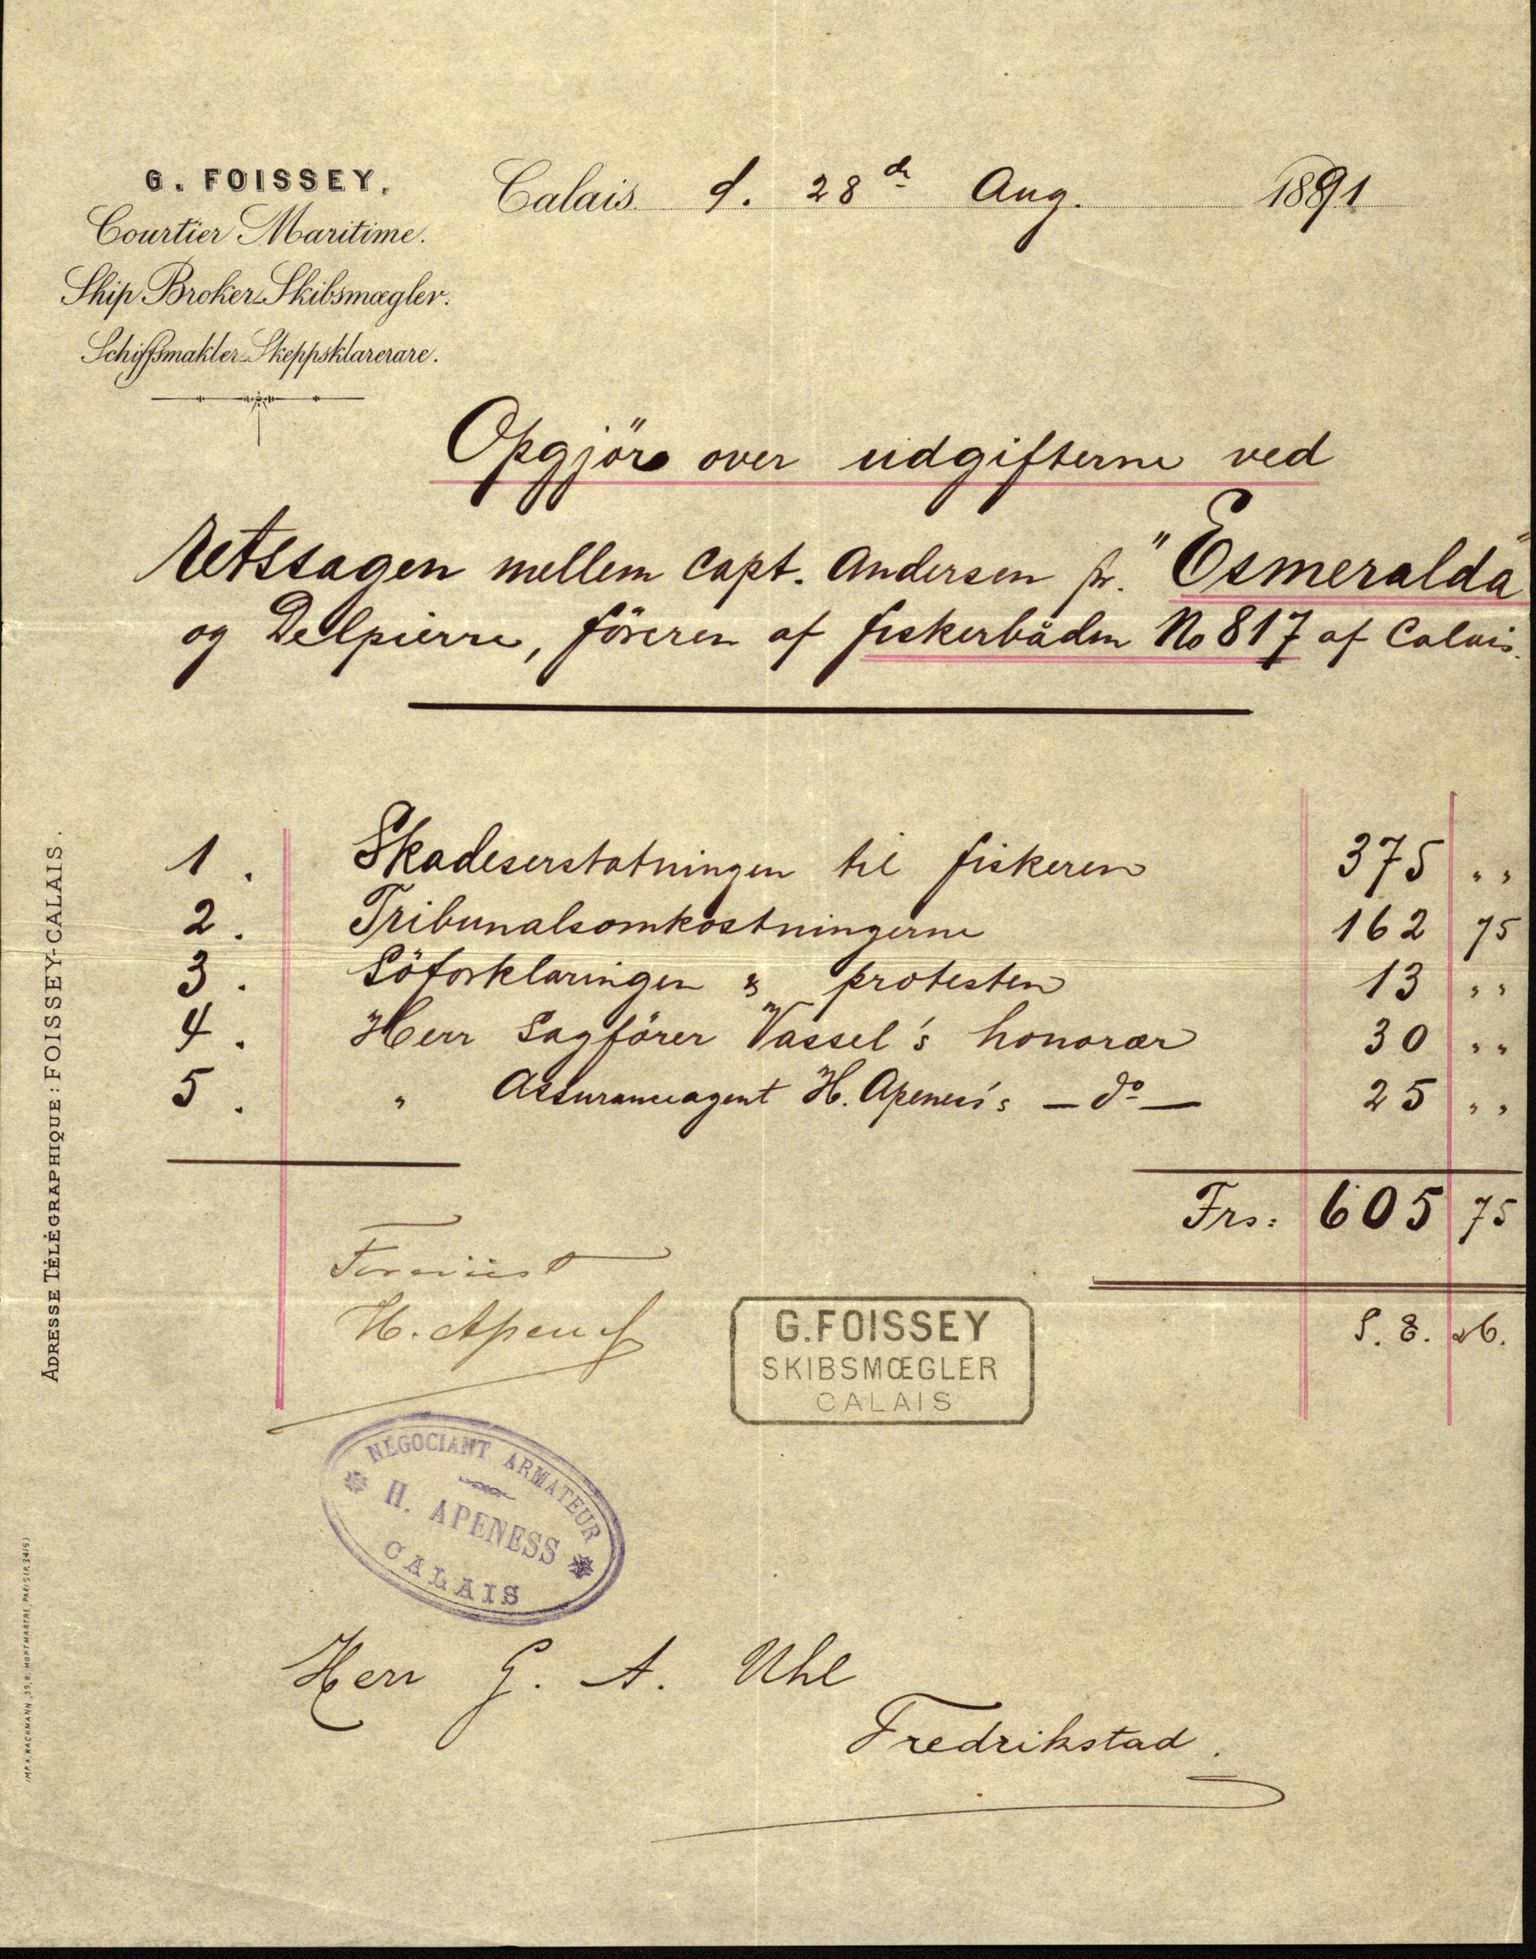 G. FOISSEY,
Courtier Maritime.
Ship Broker-Skibsmœgler.
Schiffsmakler-Skeppsklarerare.
Calais d. 28 de Aug. 1891
Opgjör over udgifterne ved
retssagen mellem Capt. Andersen fr. "Esmeralda"
og Delpierre, föreren af fiskerbåden No 817 af Calais.
1. Skadeserstatningen til fiskeren 375 " "
2. Tribunalsomkostningerne 162 75
3. Söforklaringen & protesten 13 " "
4. Herr Sagförer Vassel's honorær 30 " "
5. " Assuranceagent H. Apeness's — do — 25 " "
Frs: 605 75
S. E. &
H. Apeness
G. FOISSEY
SKIBSMŒGLER
CALAIS
NÉGOCIANT ARMATEUR
H. APENESS
CALAIS
Herr G. A. Uhl
Fredrikstad.
ADRESSE TÉLÉGRAPHIQUE: FOISSEY-CALAIS.
IMP. A. BACHMANN, 39, R. MONTMARTRE, PARIS